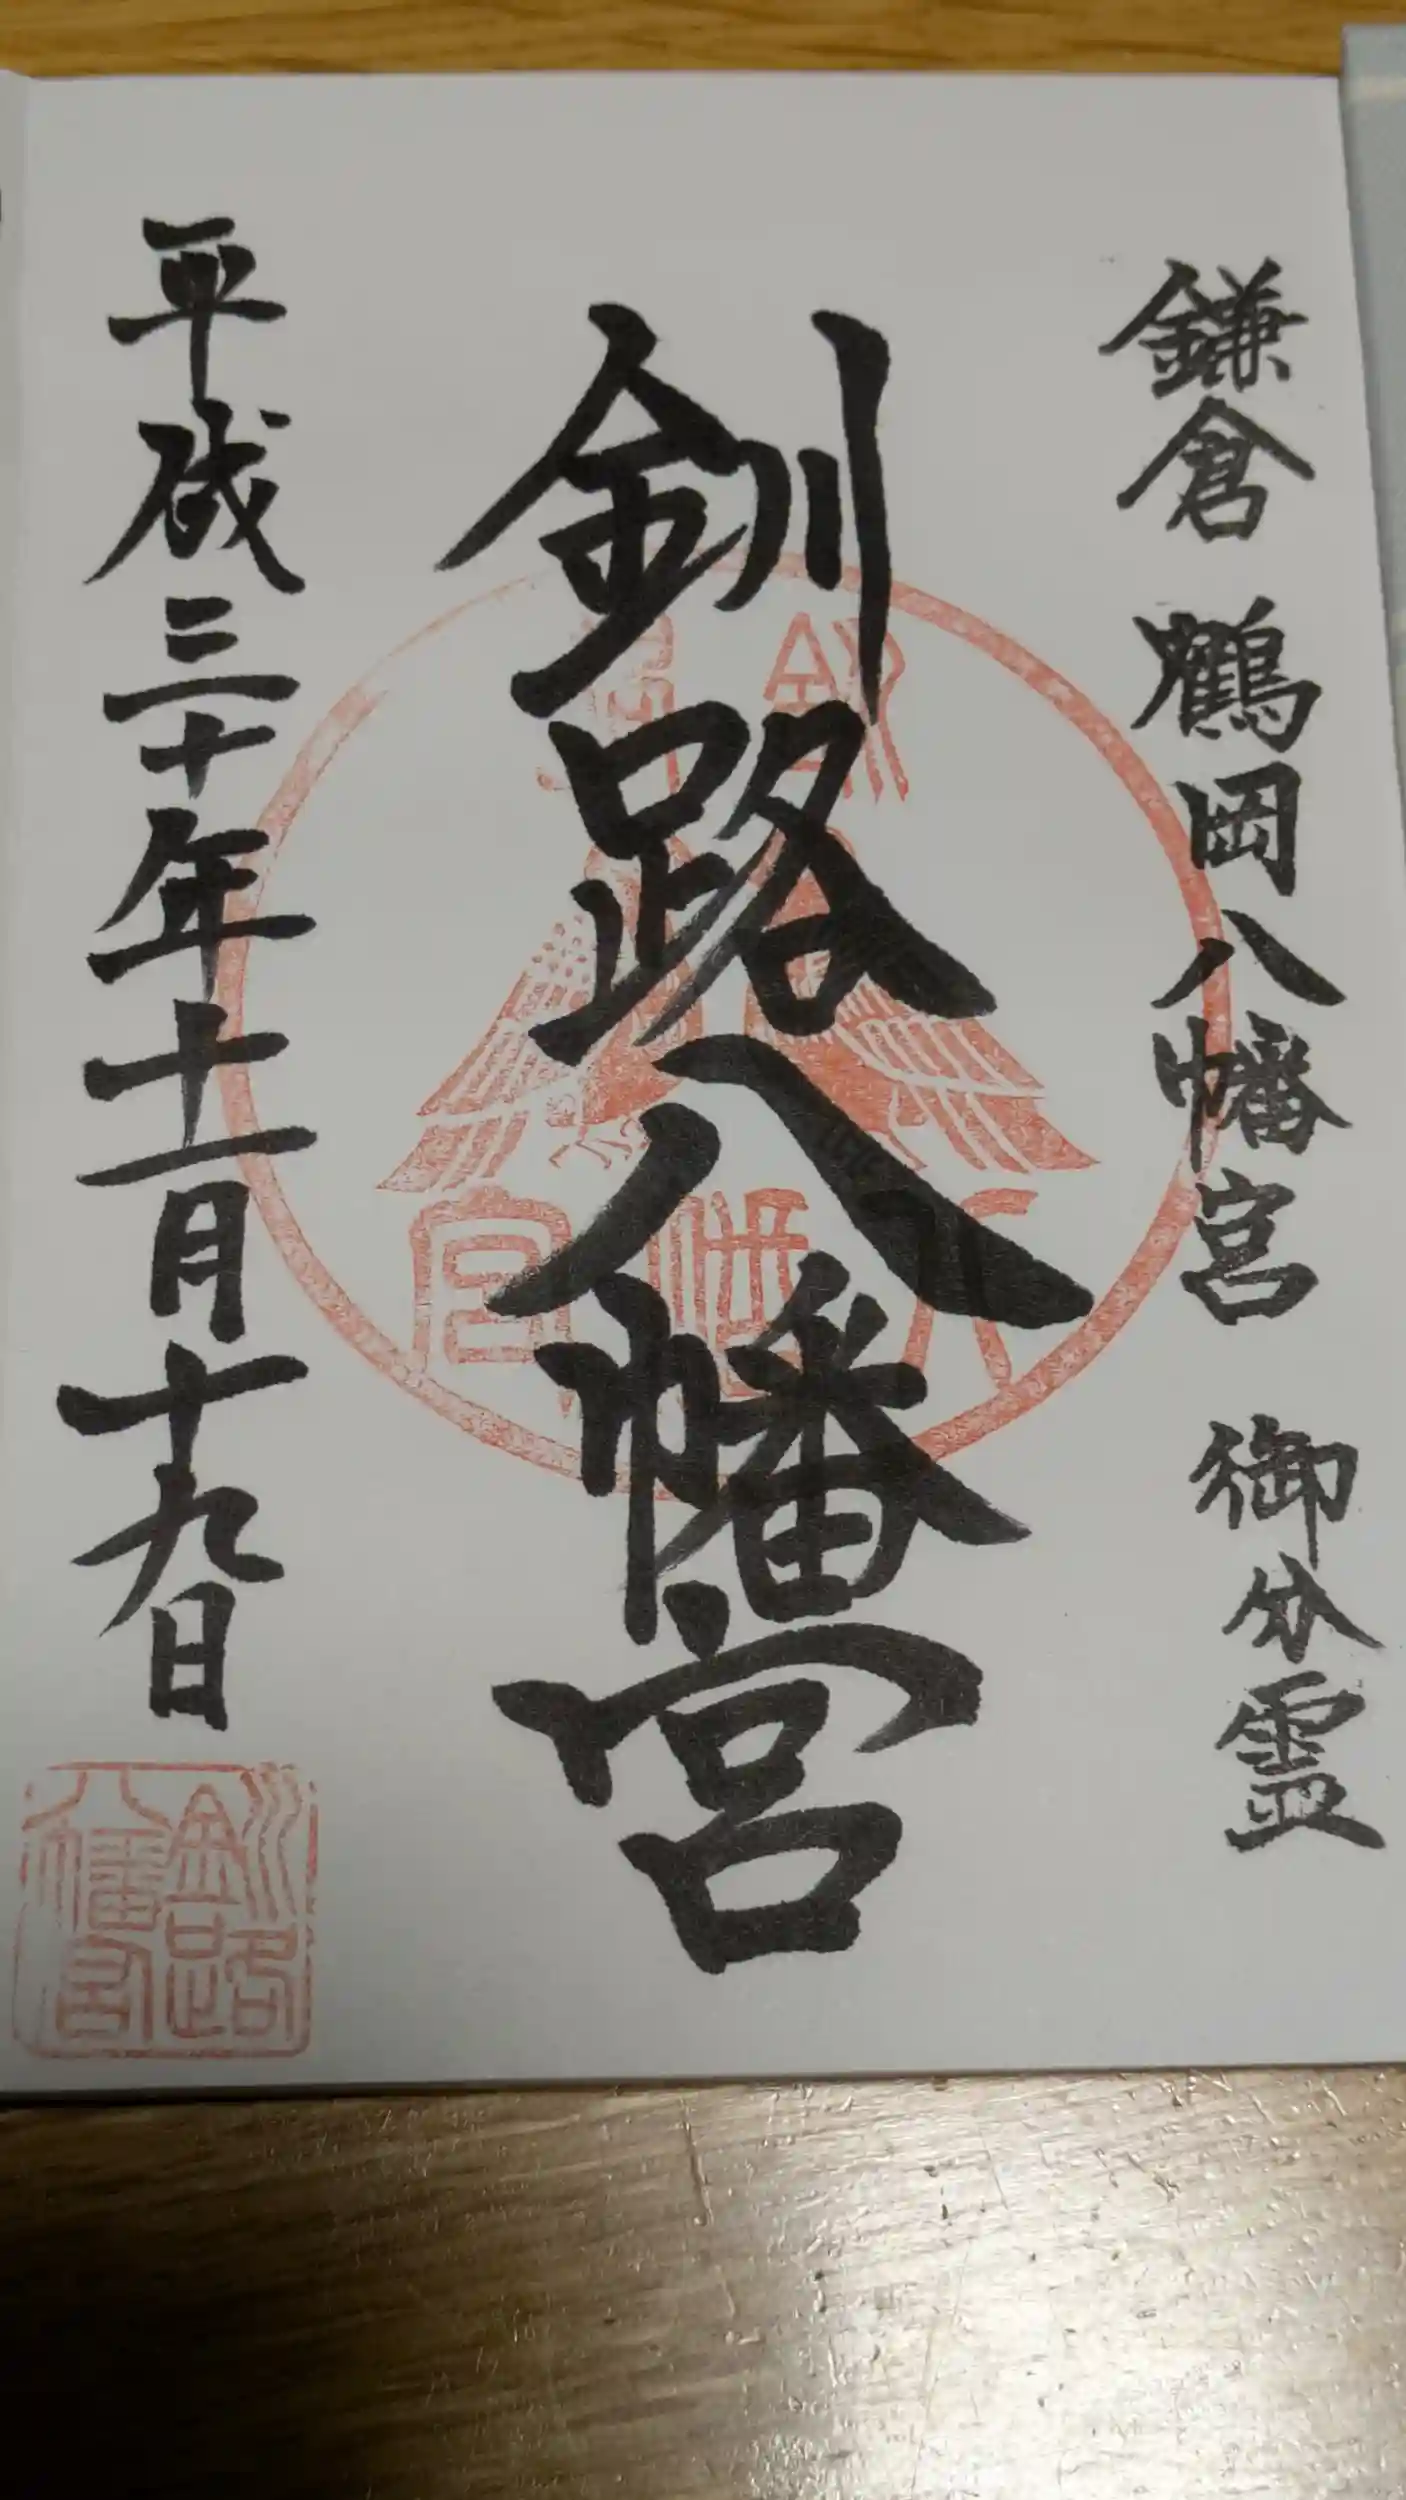 鎌倉 鶴岡八幡宮 御分霊
釧路八幡宮
平成三十年十一月十九日
釧路
八幡宮
釧路
八幡宮